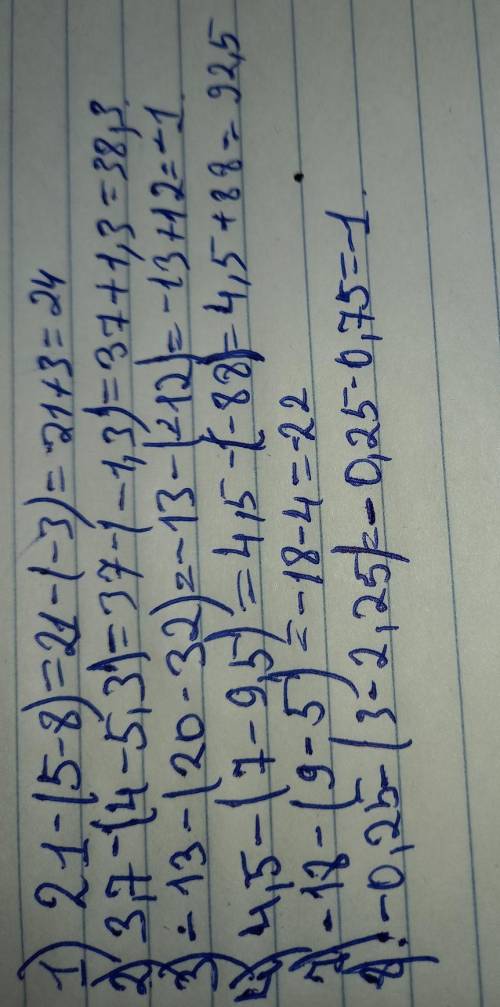 1) 21-(5-8)=21-(-3)=21+3=24
2) 3,7-(4-5,3)=37-(-1,3)=37+1,3=38,3.
3) -13-(20-32)=-13-(-12)=-13+12=-1
4,5-(7-9,5)=4,5-(-88)=4,5+88=92,5
7) -18-(9-5)=-18-4=-22
8) -0,25-(3-2,25)=-0,25-0,75=-1.